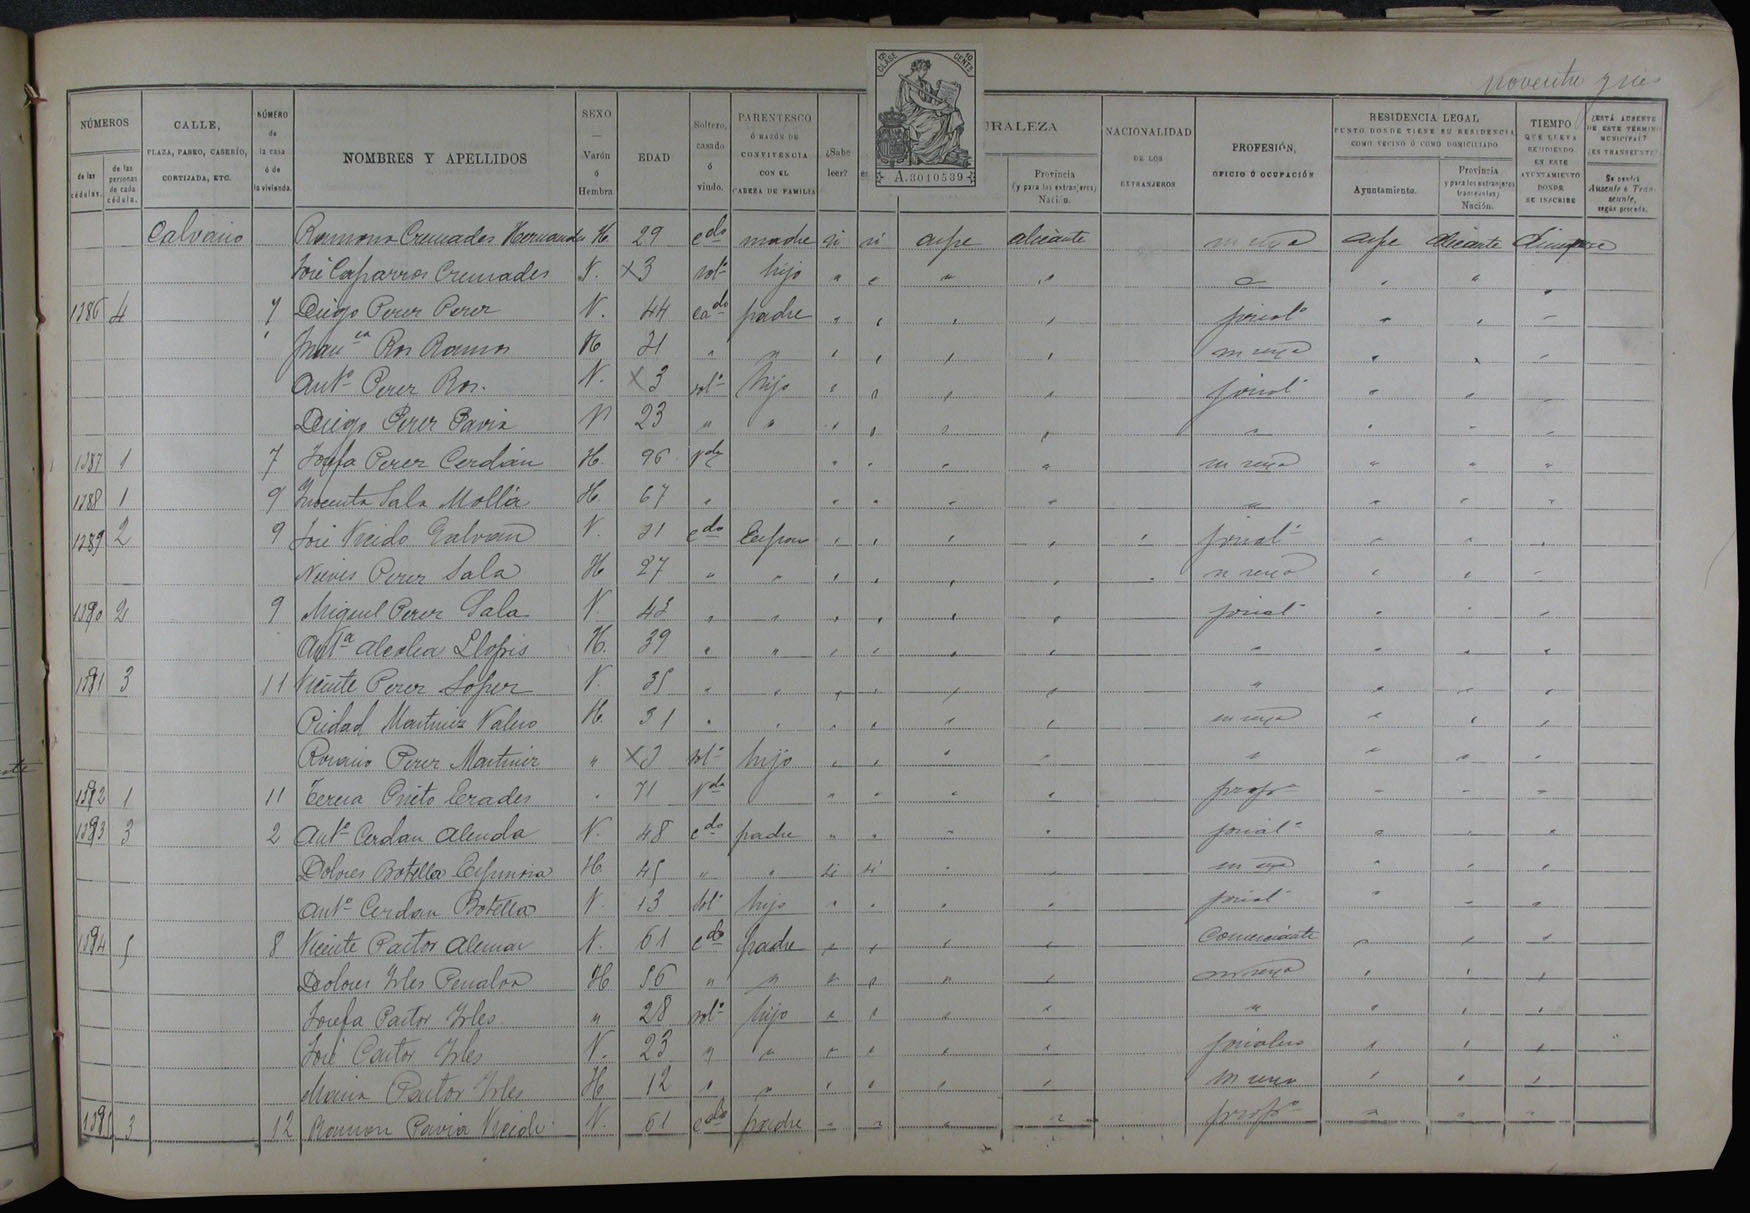 12ª CLASE 10 CENTS
A.3010539
noventa y tres
NÚMEROS
de las cédulas.
de las personas de cada cédula.
CALLE, PLAZA, PASEO, CASERÍO, CORTIJADA, ETC.
NÚMERO de la casa ó de la vivienda.
NOMBRES Y APELLIDOS
SEXO — Varón ó Hembra.
EDAD
Soltero, casado ó viudo.
PARENTESCO Ó RAZÓN DE CONVIVENCIA CON EL CABEZA DE FAMILIA
¿Sabe leer?
NACIONALIDAD DE LOS EXTRANJEROS
Provincia (y para los extranjeros) Nación.
PROFESIÓN, OFICIO Ó OCUPACIÓN
RESIDENCIA LEGAL PUNTO DONDE TIENE SU RESIDENCIA COMO VECINO Ó COMO DOMICILIADO
Ayuntamiento.
Provincia y para los extranjeros transeuntes, Nación.
TIEMPO QUE LLEVA RESIDIENDO EN ESTE AYUNTAMIENTO DONDE SE INSCRIBE
¿ESTÁ AUSENTE DE ESTE TÉRMINO MUNICIPAL? ¿ES TRANSEUNTE?
Se pondrá Ausente ó Transeunte, según proceda.
Calvario Ramona Cremades Hernandez H. 29 cdo madre si si aspe alicante aspe alicante
José Caparros Cremades V. X3 solº hijo " " " " " "
1386 4 7 Diego Perez Perez V. 44 cado padre " " " " jornalº " " "
Franca Ros Ramos H 31 " " " " " " " " "
Antº Perez Ros. V. X3 solº hijo " " " " jornal " " "
Diego Perez Pavia V 23 " " " " " " " " " "
1387 1 7 Josefa Perez Cerdán H. 96 Vda " " " " " " "
1388 1 9 Vicenta Sala Mollá H. 67 " " " " " " " " "
1389 2 9 José Vicido Galvañ V. 31 cdo Esposo " " " " " jornalº " " "
Nieves Perez Sala H 27 " " " " " " " " " "
1390 2 9 Miguel Perez Sala V. 43 " " " " " " jornalº " " "
Antª Alcolea Llopis H. 39 " " " " " " " " " "
1391 3 11 Vicente Perez Soper V. 35 " " " " " " " " " "
Piedad Martinez Valero H. 31 " " " " " " " " "
Rosario Perez Martinez " X3 solº hijo " " " " " " " "
1392 1 11 Teresa Prieto Cerades " 71 Vda " " " " " " "
1393 3 2 Antº Cerdan Alenda V. 48 cdo padre " " " " jornalº " " "
Dolores Botella Espinosa H. 45 " " si si " " " " "
Antº Cerdan Botella V. 13 solº hijo " " " " jornal " " "
1394 5 8 Vicente Pastor Aleman V. 61 cdo padre " " " " Comerciante " " "
Dolores Irles Penalva H 56 " " " " " " " " "
Josefa Pastor Irles " 28 solº hijo " " " " " " " "
José Pastor Irles V. 23 " " " " " " jornalero " " "
Maria Pastor Irles H 12 " " " " " " " " "
1395 3 12 Ramon Pavia Vicido V. 61 cdo padre " " " " " " "